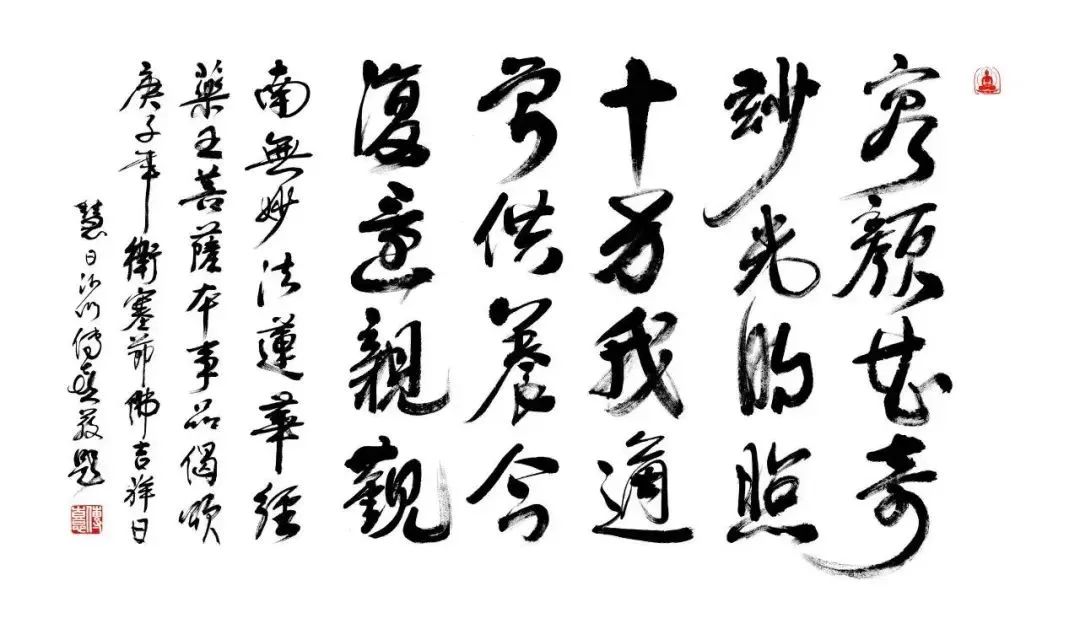 容顏甚奇
玅光明照
十方我適
曾供養今
復還親覲
南無妙法蓮華經
藥王菩薩本事品偈頌
庚子年衛塞節佛吉祥日
慧日沙門傳喜敬題